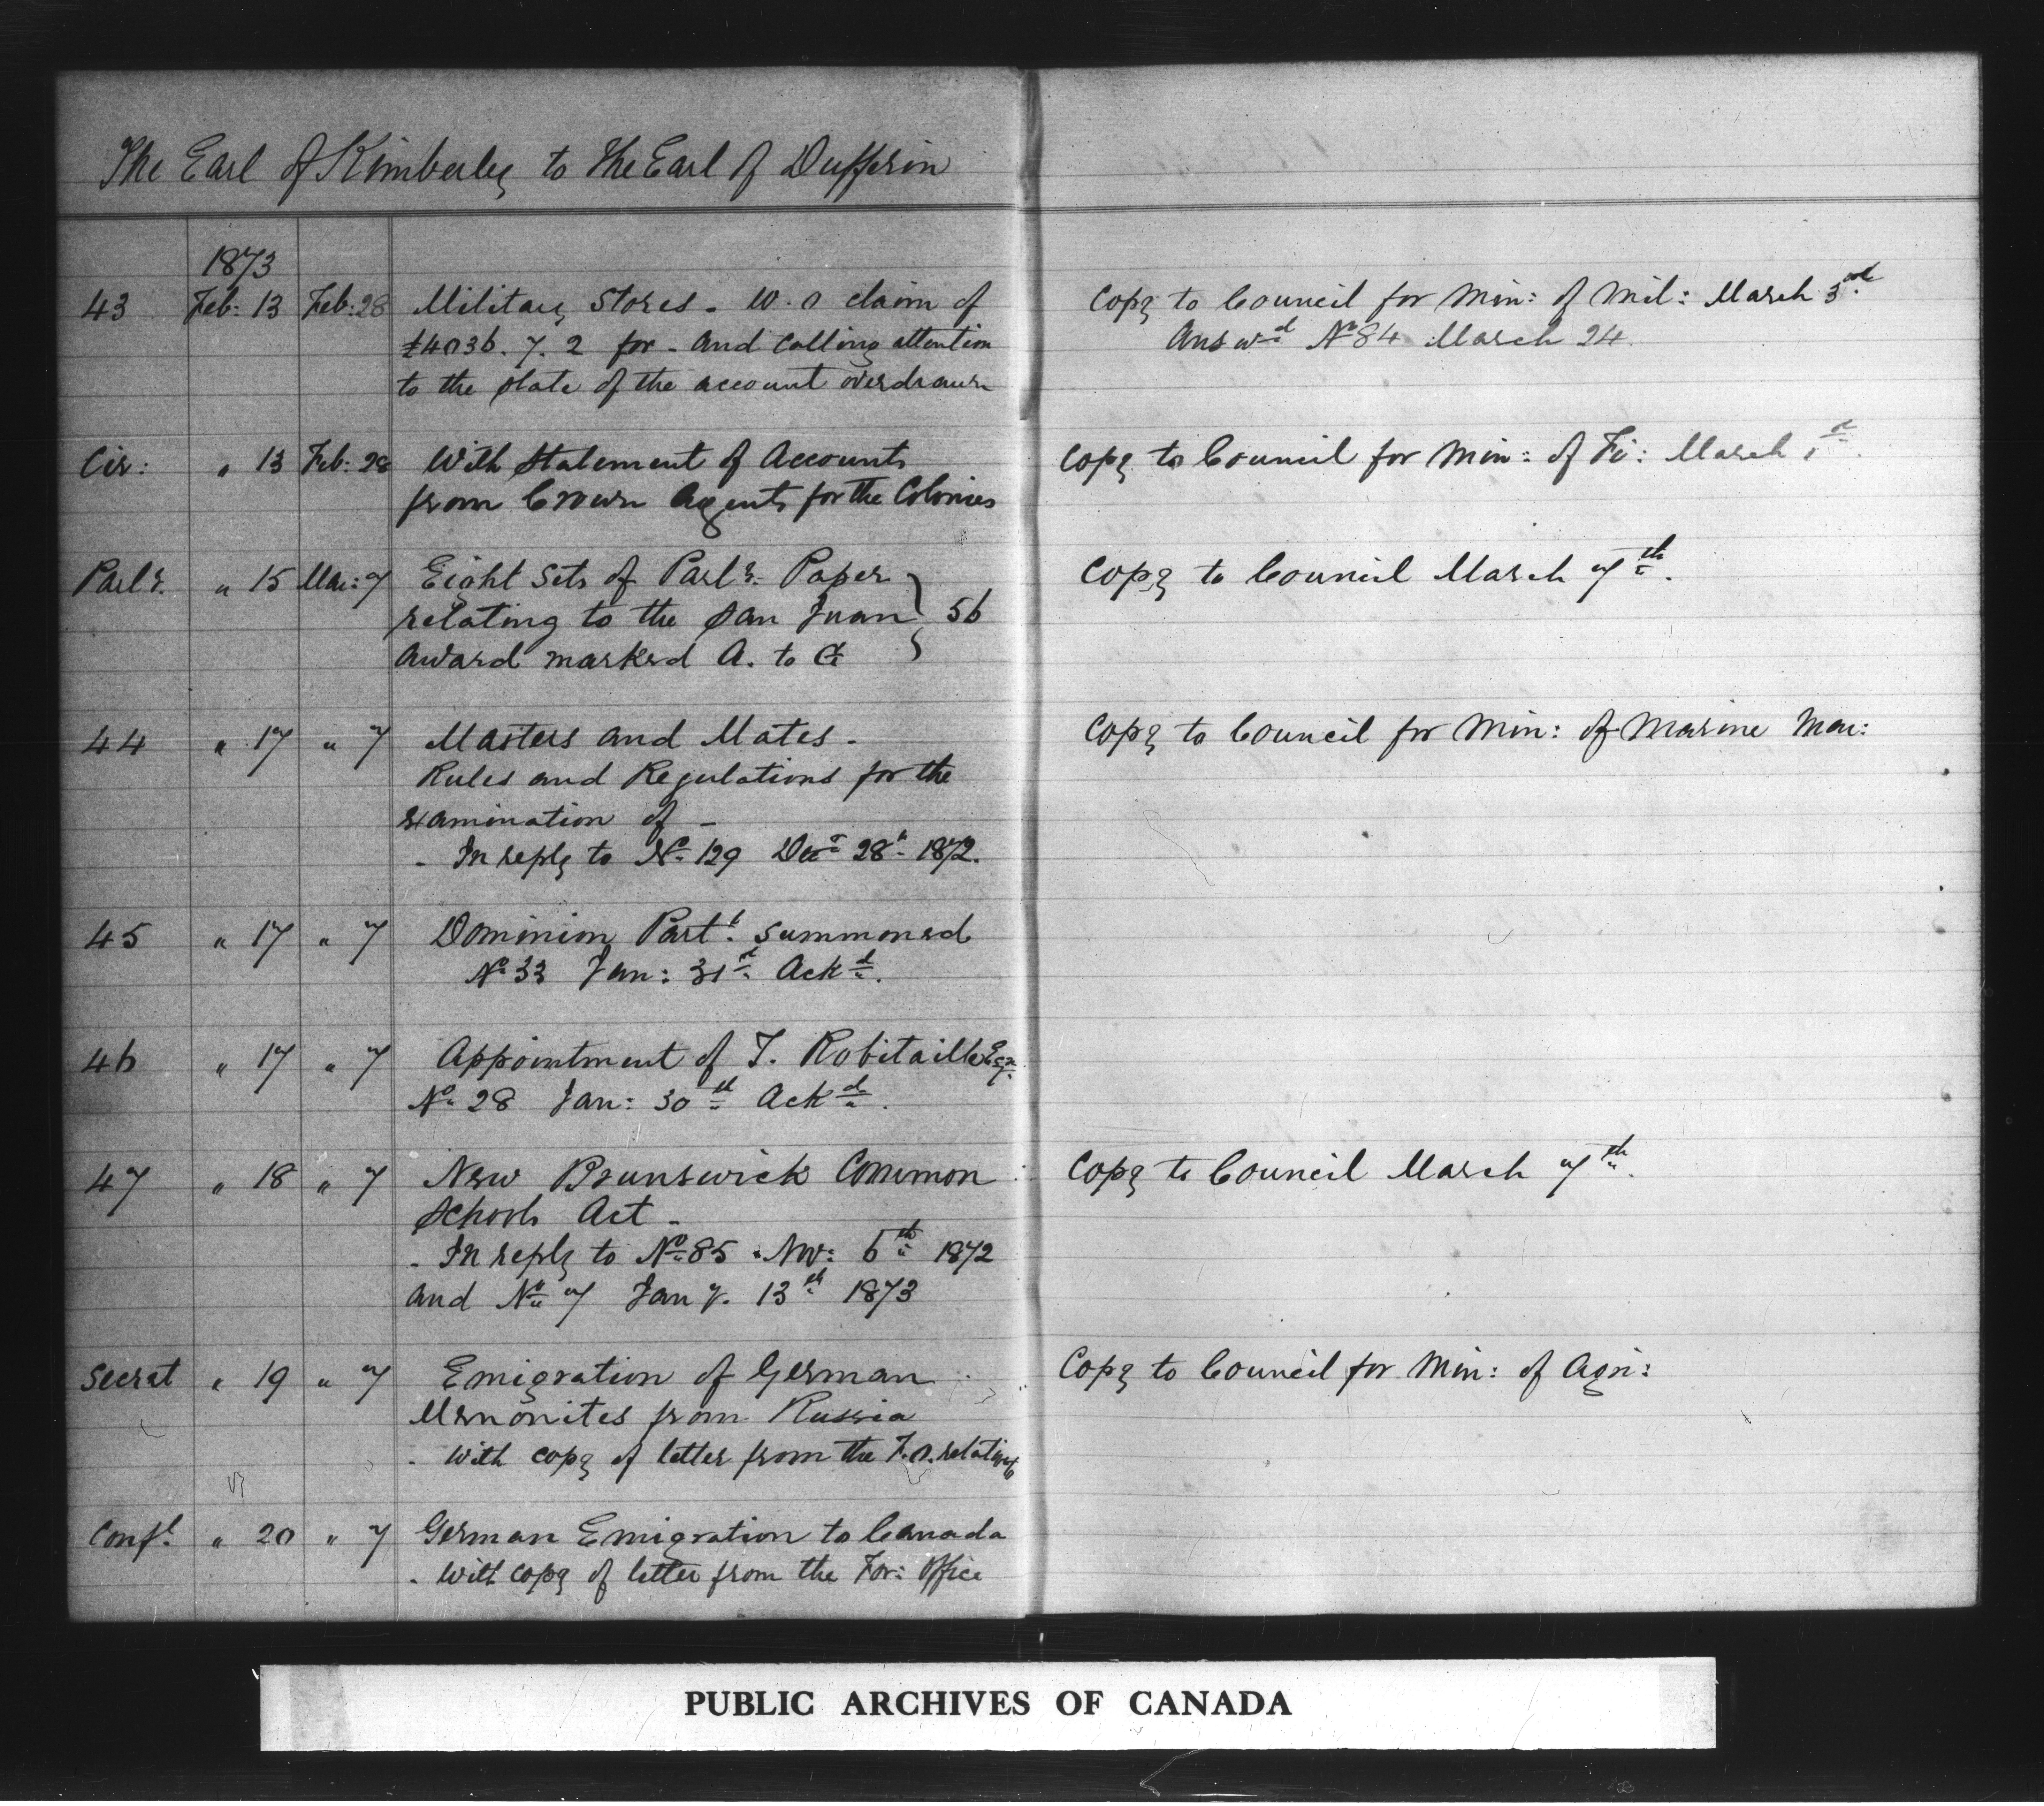 The Earl of Kimberley to the Earl of Dufferin
1873
43 Feb: 13 Feb: 28 Military Stores - W.O claim of
£4036. 7. 2 for - and calling attention
to the state of the account overdrawn
Copy to Council for Min: of Mil: March 3rd
Answd No 84 March 24.
Cir: " 13 Feb: 28 With Statement of Accounts
from Crown Agents for the Colonies
Copy to Council for Min: of Fi: March 1st.
Parly. " 15 Mar: 7 Eight Sets of Parly: Paper
relating to the San Juan } 56
award marked A. to G
Copy to Council March 7th.
44 " 17 " 7 Masters and Mates -
Rules and Regulations for the
examination of -
- In reply to No 129 Decr 28th 1872.
Copy to Council for Min: of Marine Mar:
45 " 17 " 7 Dominion Part. summoned
No 33 Jan: 31st Ackd.
46 " 17 " 7 Appointment of T. Robitaille Esqr
No 28 Jan: 30th Ackd.
47 " 18 " 7 New Brunswick Common
Schools Act -
- In reply to No 85 Nov: 6th 1872
and No 7 Jany. 13th 1873
Copy to Council March 7th.
Secret " 19 " 7 Emigration of German
Mennonites from Russia
- With copy of letter from the F.O. relating to
Copy to Council for Min: of Agri:
Confl. " 20 " 7 German Emigration to Canada
- With copy of letter from the For: Office
PUBLIC ARCHIVES OF CANADA